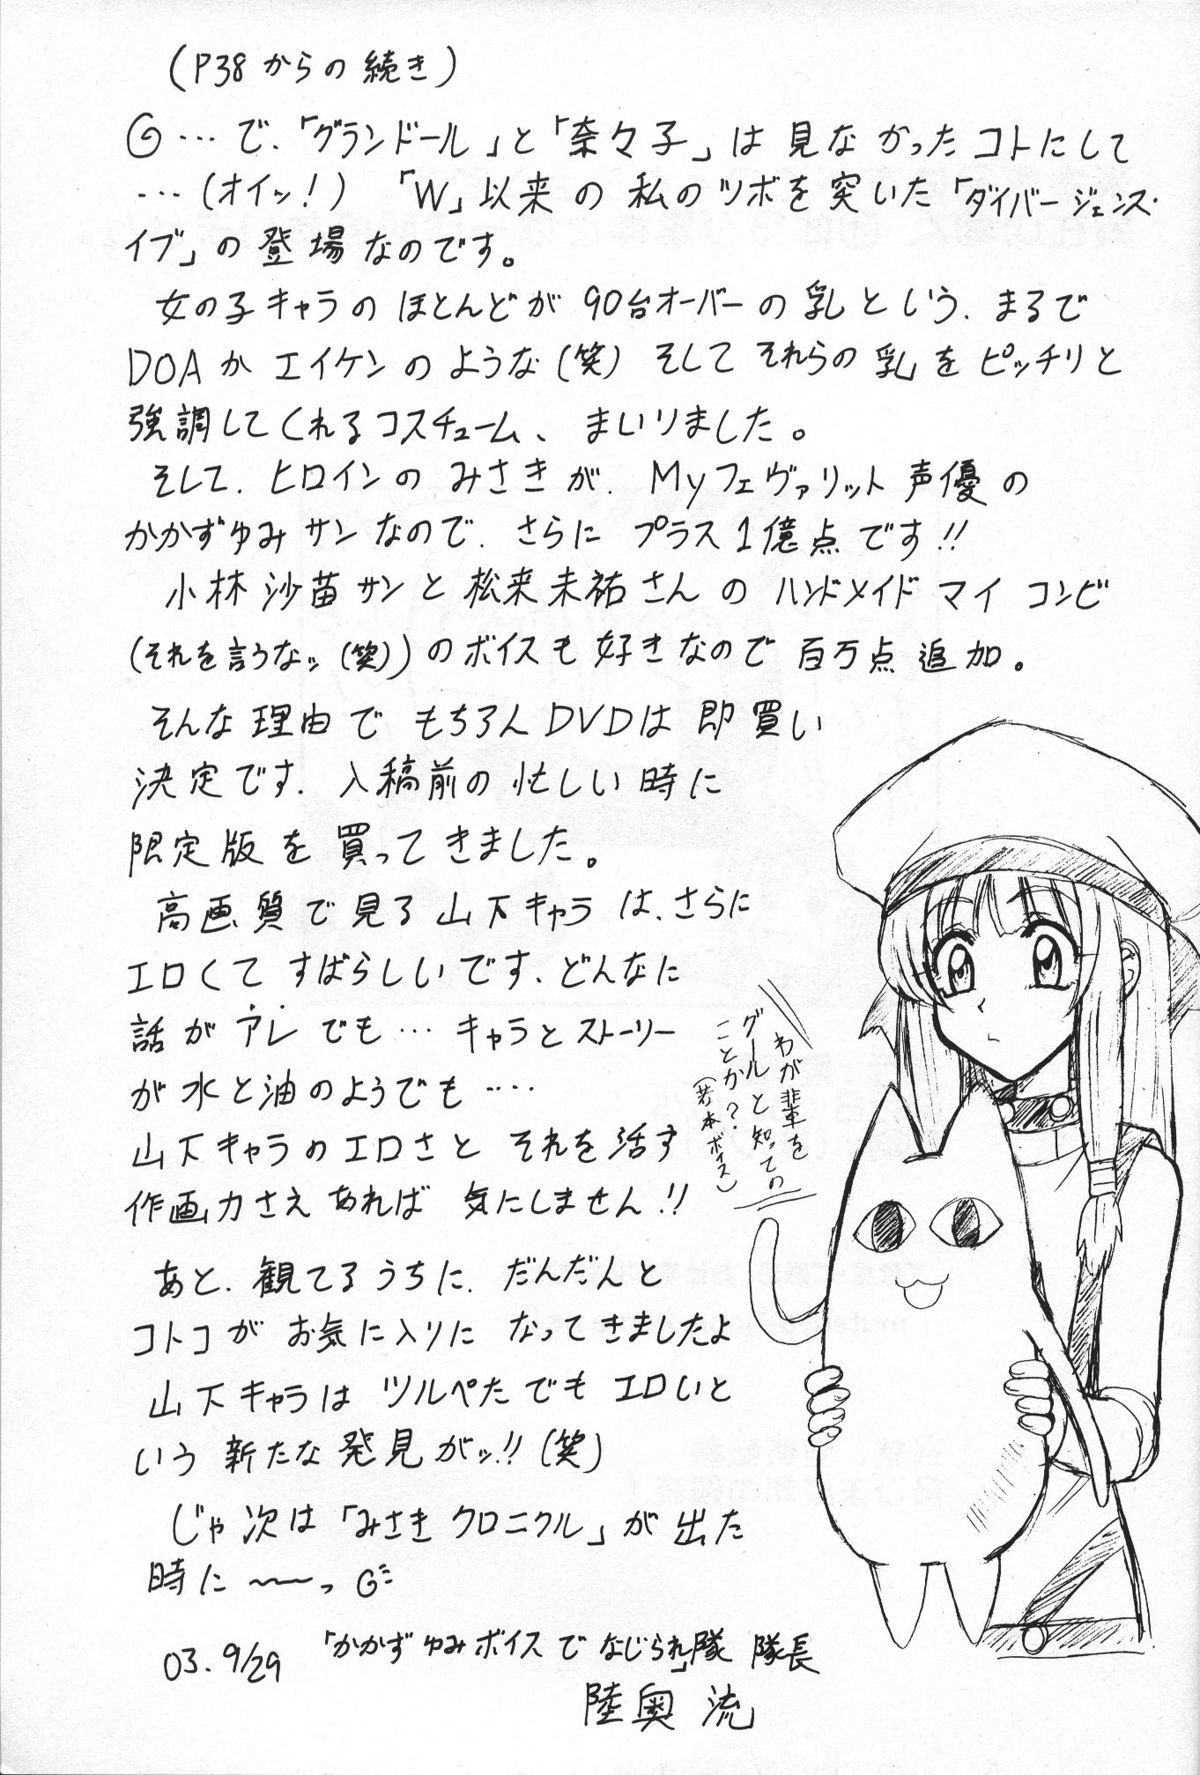 (P38からの続き)
…で、「グランドール」と「奈々子」は見なかったコトにして
…(オイッ!) 「W」以来の私のツボを突いた「ダイバージェンス・
イブ」の登場なのです。
女の子キャラのほとんどが90台オーバーの乳という、まるで
DOAかエイケンのような(笑) そしてそれらの乳をピッチリと
強調してくれるコスチューム、まいりました。
そして、ヒロインのみさきが、Myフェヴァリット声優の
かかずゆみサンなので、さらにプラス1億点です!!
小林沙苗サンと松来未祐さんのハンドメイドマイコンビ
(それを言うなッ(笑))のボイスも好きなので百万点追加。
そんな理由でもちろんDVDは即買い
決定です、入稿前の忙しい時に
限定版を買ってきました。
高画質で見る山下キャラは、さらに
エロくてすばらしいです、どんなに
話がアレでも…キャラとストーリー
が水と油のようでも…
山下キャラのエロさとそれを活す
作画力さえあれば気にしません!!
あと、観てるうちに、だんだんと
コトコがお気に入りになってきましたよ
山下キャラはツルペタでもエロいと
いう新たな発見がッ!!(笑)
じゃ次は「みさきクロニクル」が出た
時に〜〜っ
03.9/29 「かかずゆみボイスでなじられ」隊 隊長
陸奥 流
わが輩を
グールと知っての
ことか?
(若本ボイス)